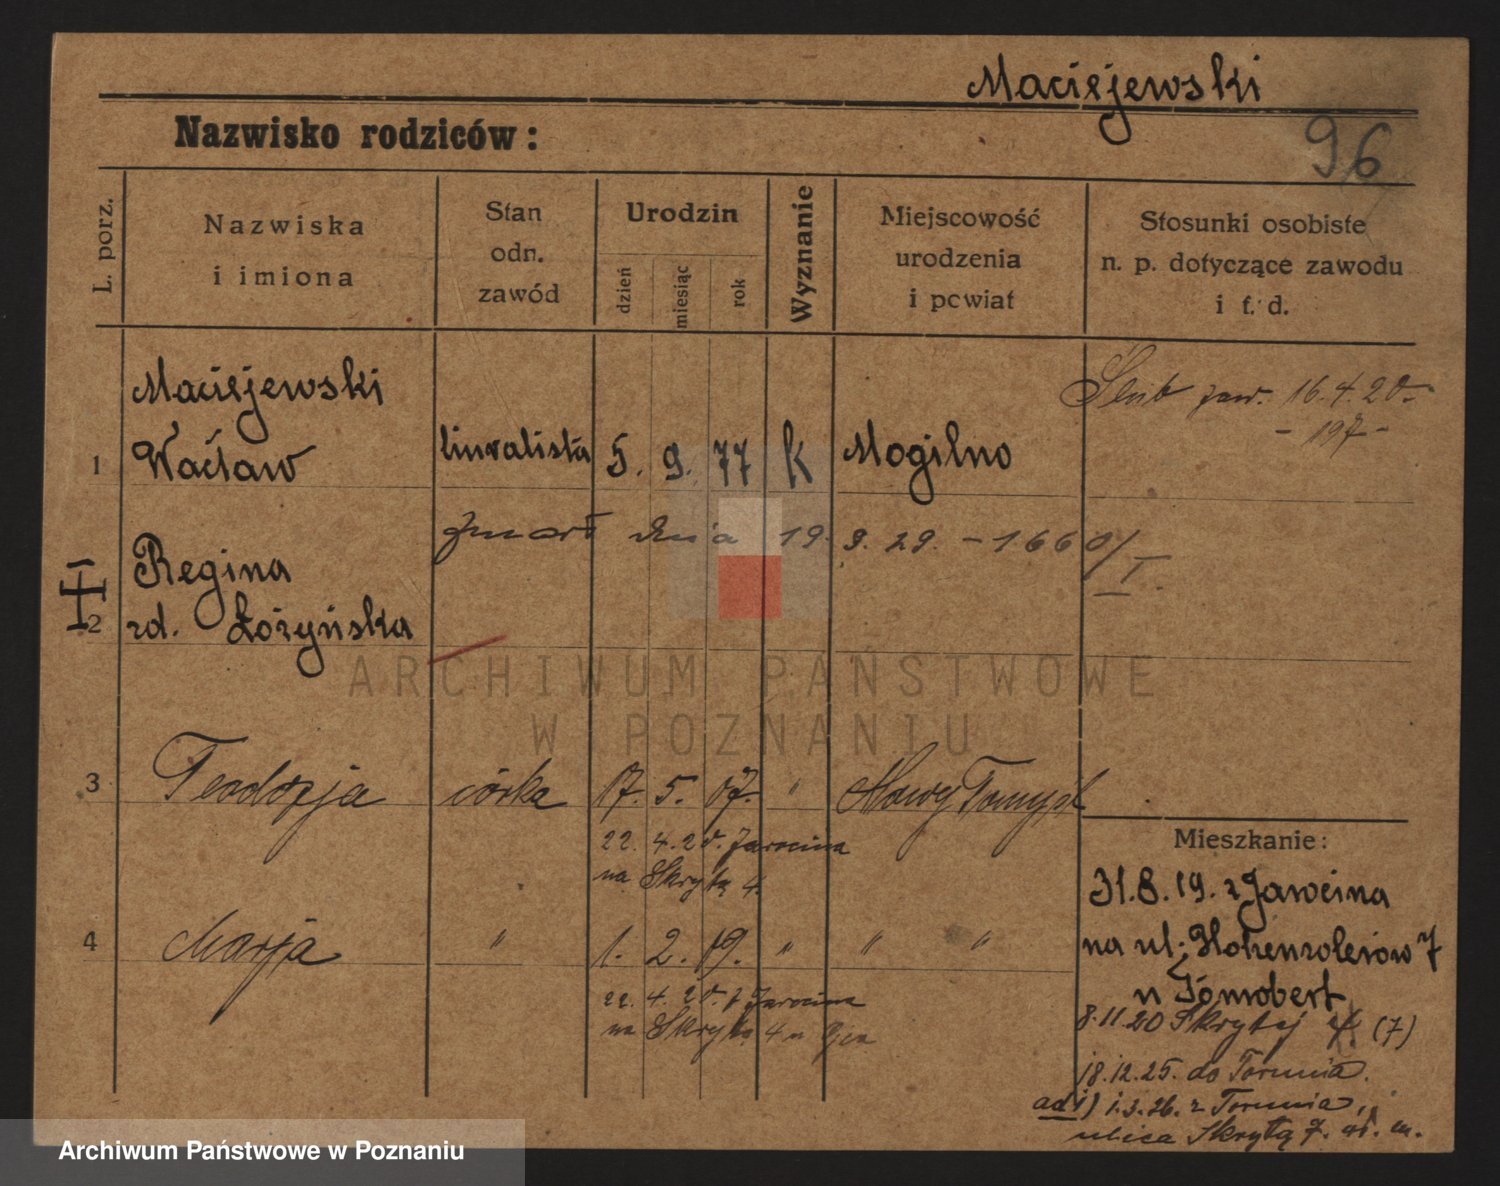 Maciejewski
Nazwisko rodziców:
96
L. porz.
Nazwiska
i imiona
Stan
odn.
zawód
Urodzin
dzień
miesiąc
rok
Wyznanie
Miejscowość
urodzenia
i powiat
Stosunki osobiste
n. p. dotyczące zawodu
i t. d.
Maciejewski
1 Wacław 5. 9. 77 K Mogilno
Ślub zaw. 16.4.20.
- 197 -
zmarł dnia 19. 9. 29. - 1660/I.
Regina
2 zd. Łożyńska
ARCHIWUM PAŃSTWOWE
W POZNANIU
3 Teodozja córka 17. 5. 07. " Nowy Tomyśl
22. 4. 20. z Jarocina
na Skrytą 4.
4 Marja " 1. 2. 19. " " "
22. 4. 20. z Jarocina
na Skrytą 4 u Ojca
Mieszkanie:
31.8.19. z Jarocina
na ul. 7
u
8.11.20 Skrytej (7)
18.12.25. do Torunia.
ad 1) 1.3.26. z Torunia,
ulica Skrytą 7.
Archiwum Państwowe w Poznaniu